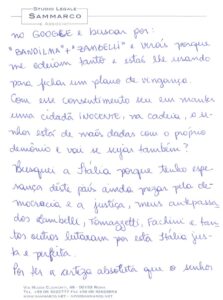 STUDIO LEGALE
SAMMARCO
E ASSOCIATI
no GOOGLE e buscar por:
"BANDILMA" + "ZAMBELLI" e verás porque
me odeiam tanto e estás lhe usando
para fichar um plano de vingança.
Com esse consentimento seu em manter
uma cidadã INOCENTE, na cadeia, o se-
nhor está de mãos dadas com o próprio
demônio e vai se sujar também?
Busquei a Itália porque tenho espe-
rança deste país ainda prezar pela de-
mocracia e a justiça, meus antepassa-
dos Zambelli, Tomazzetti, Fachini e tan-
tos outros lutaram por esta Itália jus-
ta e perfeita.
Por ter a certeza absoluta que o senhor
ROMA